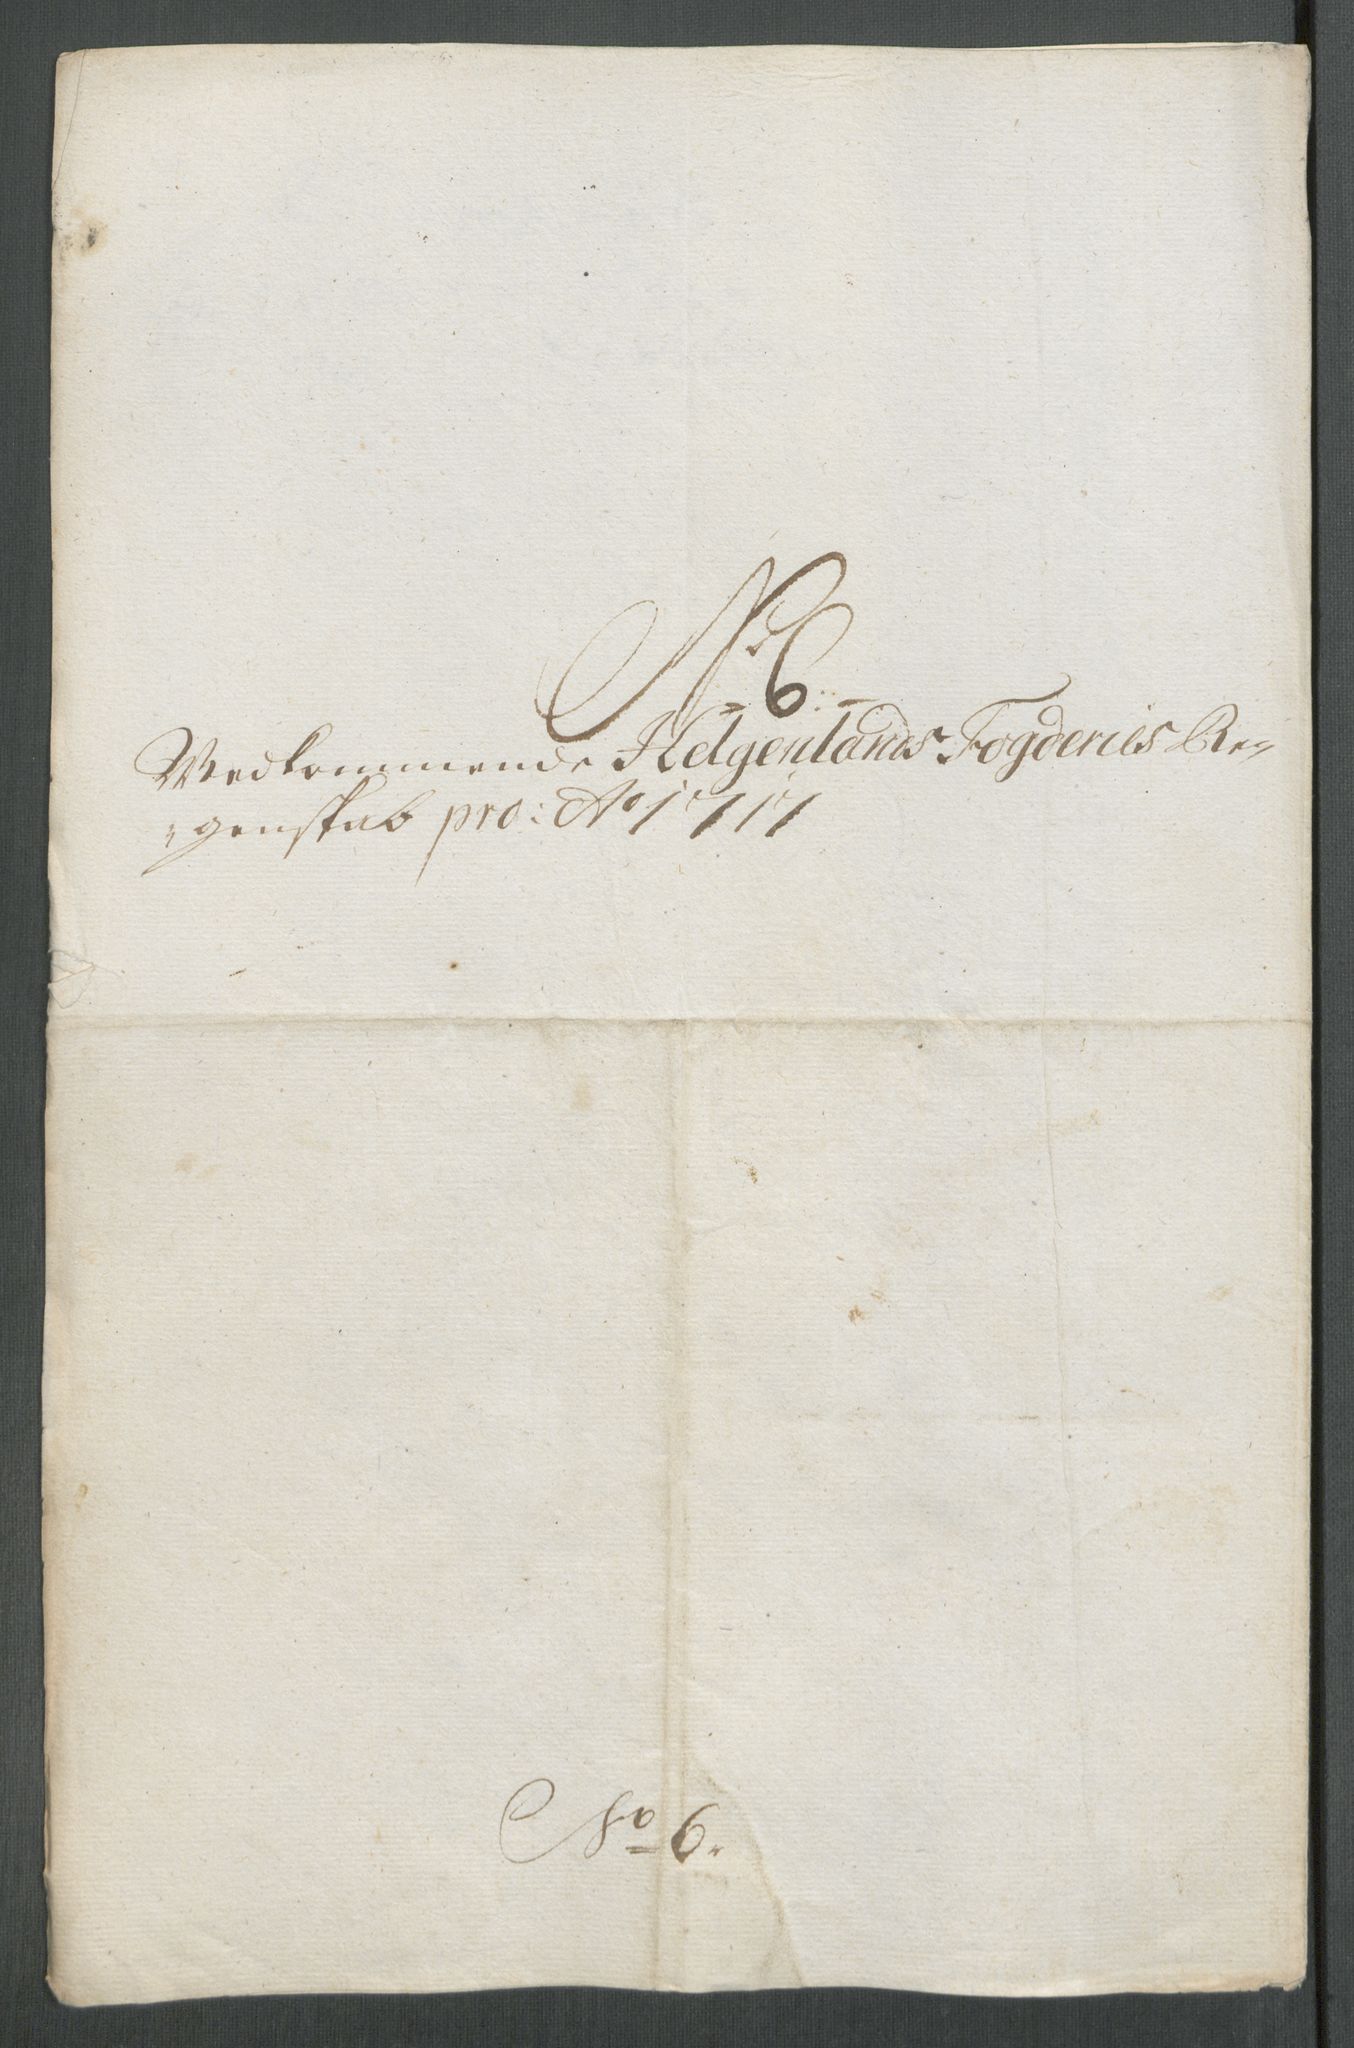 No 6:
Vedkommende Helgenlands Fogderies Re-
genskab pro: Ao 1717
No 6.